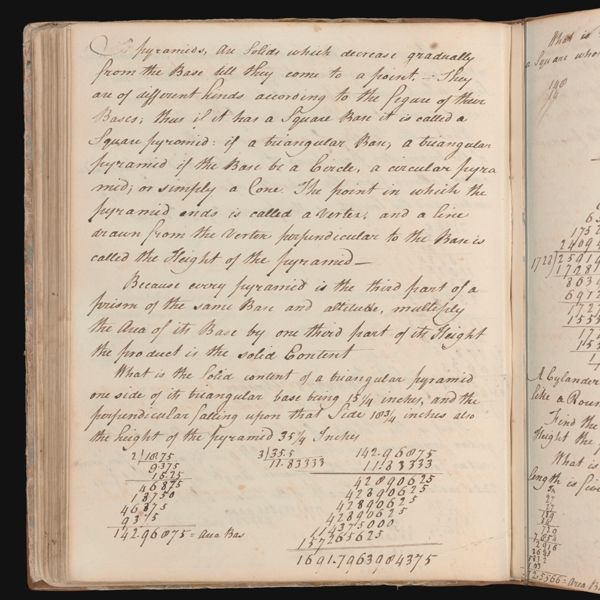 pyramids, are Solids which decrease gradually
from the Base till they come to a point. — They
are of different kinds according to the figure of their
Bases; thus if it has a Square Base it is called a
Square pyramid: if a triangular Base, a triangular
pyramid if the Base be a Circle, a circular pyra
mid; or simply a Cone. The point in which the
pyramid ends is called a Vertex; and a line
drawn from the Vertex perpendicular to the Base is
called the Height of the pyramid —
Because every pyramid is the third part of a
prism of the same Base and altitude, multiply
the Area of its Base by one third part of its Height
the product is the solid Content
What is the Solid content of a triangular pyramid
one side of its triangular base being 15 1/4 inches, and the
perpendicular falling upon that Side 18 3/4 inches also
the height of the pyramid 35 1/2 Inches
2/18.75
9375
15.25
46875
18750
46875
9375
142.96875 = Area Bas
3/35.5
11.83333
142.96875
11.83333
42890625
42890625
42890625
42890625
114375000
157265625
1691.7963984375
What is
a Square whose
A Cylander
like a Roun
Find the
Height the
What is
length is five